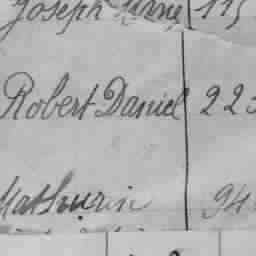 Joseph
Robert Daniel 22
Mathurin 94